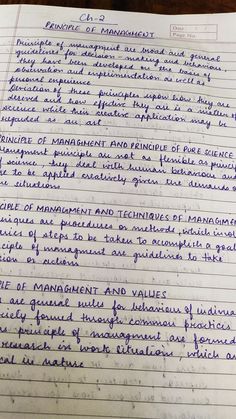 Ch-2
PRINCIPLE OF MANAGMENT
Date
Page No.
Principle of managment are broad and general
guidelines for decision-making and behaviour
they have been developed on the basis of
observation and experimentation as well as
personal experience
Derivation of these principles upon how they are
derived and how effective they are is matter of
science while their creative application may be
regarded as an art
RINCIPLE OF MANAGMENT AND PRINCIPLE OF PURE SCIENCE
anagment principle are not as flexible as princip
f science, they deal with human behaviour and
e to be applied creatively given the demands o
e situations
CIPLE OF MANAGMENT AND TECHNIQUES OF MANAGMEN
niques are procedures or methods, which invol
eries of steps to be taken to accomplish a goal
ciple of managment are guidelines to take
ion or actions
PLE OF MANAGMENT AND VALUES
are general rules for behaviour of individua
ciety formed through common practices
as principle of managment are formed
research in work situations, which are
cal in nature